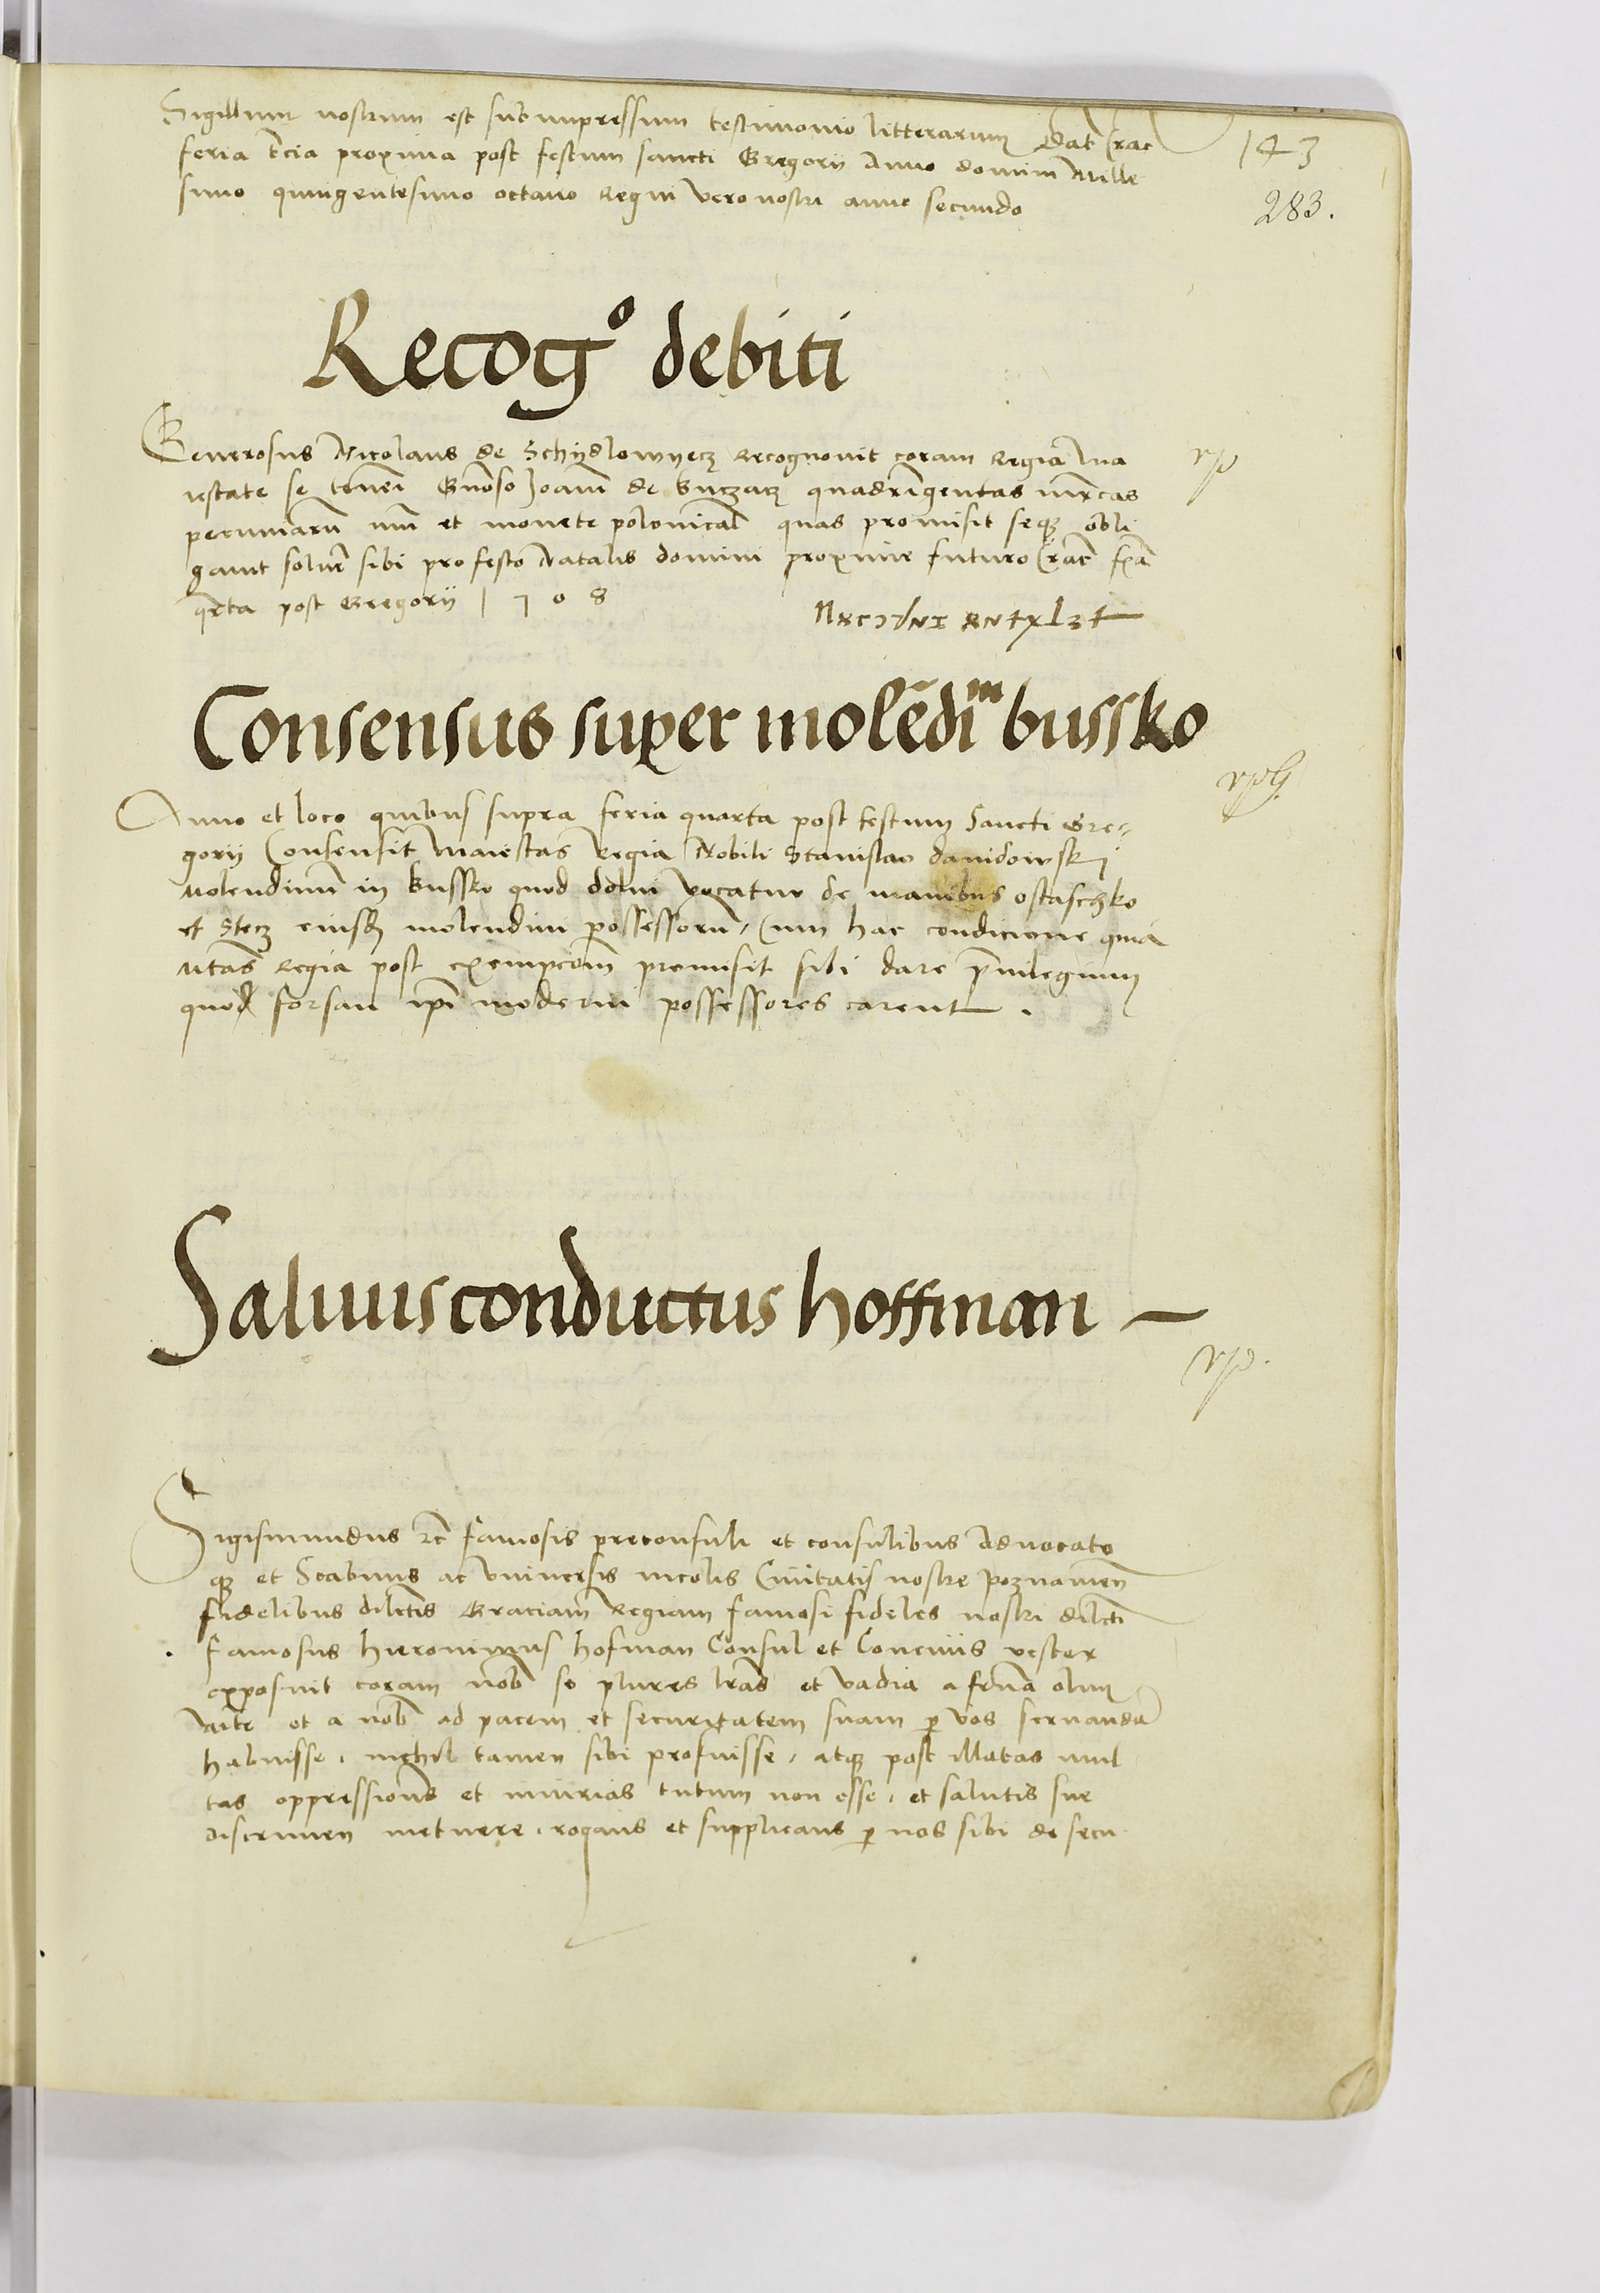 Sigillum nostrum est subimpressum testimonio litterarum Dat Crac
feria tcia proxima post festum sancti Gregorii Anno domini Mille
simo quingentesimo octavo Regni vero nostri anno secundo
143
283.
Recogo debiti
Generosus Nicolaus de Schydlowyecz recognovit coram Regia Ma
iestate se teneri Gnoso Joanni de Buczacz quadringentas mrcas
pecuniarum num et monete polonicalis quas promisit seque obli
gavit solvere sibi pro festo Natalis domini proxime futuro Crac fia
qrta post Gregorii 1508
Consensus super molēdinm bussko
Anno et loco quibus supra feria quarta post festum Sancti Gre=
gorii Consensit Maiestas Regia Nobili Stanislao davidowski
molendinum in Bussko quod dolni vocatur de manibus ostaschko
et Stecz eiusdem molendini possessorum, Cum hac condicione quia
Mtas Regia post exempcionem promisit sibi dare privilegium
quod forsan ipsi moderni possessores carent .
Salvusconductus hoffman
Sigismundus etc famosis preconsuli et consulibus Advocato
que et Scabinis ac universis incolis Civitatis nostre poznanien
fidelibus dilectis Graciam Regiam famosi fideles nostri dilecti
famosus hieronimus hofman Consul et Concivis vester
exposuit coram nobis se plures lras et vadia a frma olim
et a nobis ad pacem et securitatem suam per vos servandam
habuisse, nichil tamen sibi profuisse, atque post illatas mul
tas oppressiones et iniurias tutum non esse, et salutis sue
discrimen metuere, rogans et supplicans per nos sibi de secu